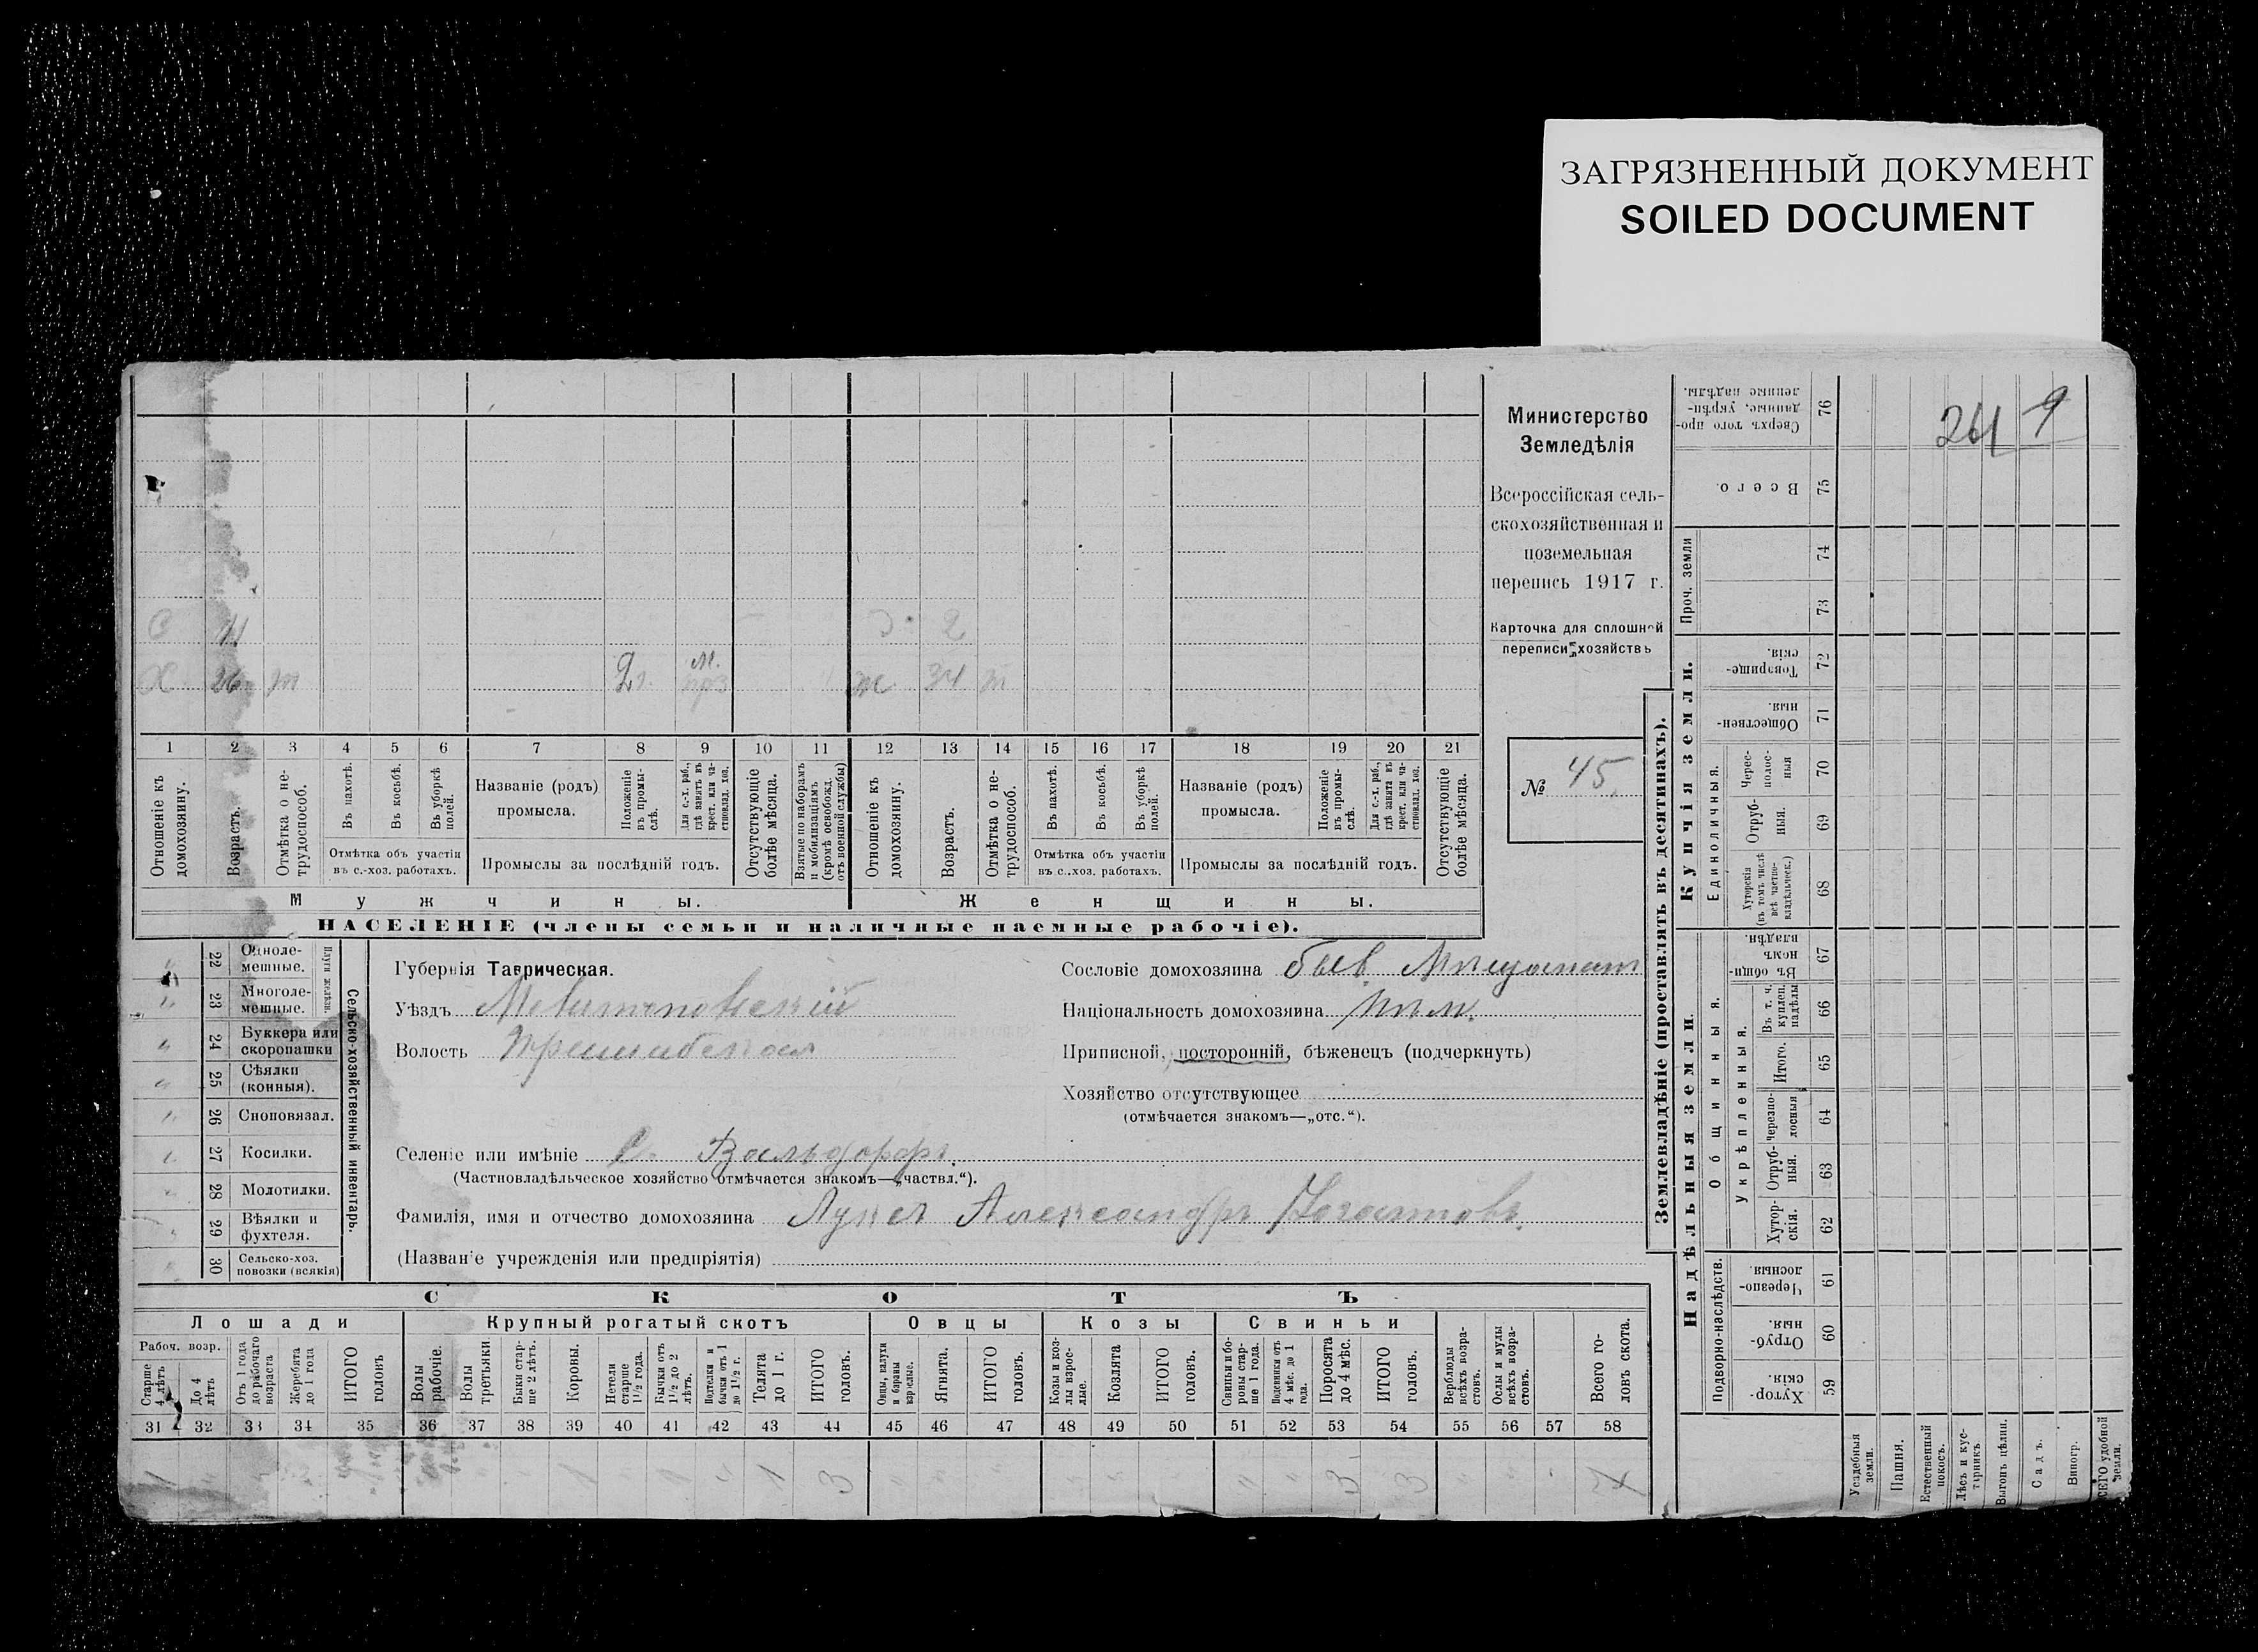 ЗАГРЯЗНЕННЫЙ ДОКУМЕНТ
SOILED DOCUMENT
Министерство
Земледѣлія
Всероссійская сель-
скохозяйственная и
поземельная
перепись 1917 г.
Карточка для сплошной
переписи хозяйствъ
№ 45.
С 11 2
Х 36 т 2 м. ж 34 т
1 2 3 4 5 6 7 8 9 10 11 12 13 14 15 16 17 18 19 20 21
Отношеніе къ домохозяину.
Возрастъ.
Отмѣтка о не-трудоспособ.
Въ пахотѣ.
Въ косьбѣ.
Въ уборкѣ полей.
Названіе (родъ) промысла.
Положеніе въ промы-слѣ.
Для с.-х. раб., гдѣ занятъ въ крест. или ча-стновлад. хоз.
Отсутствующіе болѣе мѣсяца.
Взятые по наборамъ и мобилизаціямъ (кромѣ освобожд. отъ военной службы)
Отношеніе къ домохозяину.
Возрастъ.
Отмѣтка о не-трудоспособ.
Въ пахотѣ.
Въ косьбѣ.
Въ уборкѣ полей.
Названіе (родъ) промысла.
Положеніе въ промы-слѣ.
Для с.-х. раб., гдѣ занята въ крест. или ча-стновлад. хоз.
Отсутствующіе болѣе мѣсяца.
Отмѣтка объ участіи въ с.-хоз. работахъ.
Промыслы за послѣдній годъ.
Отмѣтка объ участіи въ с.-хоз. работахъ.
Промыслы за послѣдній годъ.
Мужчины. Женщины.
НАСЕЛЕНІЕ (члены семьи и наличные наемные рабочіе).
22 Одноле-мешные.
23 Многоле-мешные.
Плуги желѣзн.
24 Буккера или скоропашки
25 Сѣялки (конныя).
26 Сноповязал.
27 Косилки.
28 Молотилки.
29 Вѣялки и фухтеля.
30 Сельско-хоз. повозки (всякія)
Сельско-хозяйственный инвентарь.
Губернія Таврическая.
Уѣздъ Мелитопольскій
Волость Пришибская
Селеніе или имѣніе С. Вальдорфъ.
(Частновладѣльческое хозяйство отмѣчается знакомъ—„частвл.“).
Фамилія, имя и отчество домохозяина Александръ
(Названіе учрежденія или предпріятія)
Сословіе домохозяина быв.
Національность домохозяина
Приписной, посторонній, бѣженецъ (подчеркнуть)
Хозяйство отсутствующее
(отмѣчается знакомъ—„отс.“).
СКОТЪ
Лошади Крупный рогатый скотъ Овцы Козы Свиньи
Рабоч. возр.
Старше 4 лѣтъ
До 4 лѣтъ
Отъ 1 года до рабочаго возраста
Жеребята до 1 года
ИТОГО головъ
Волы рабочіе.
Волы третьяки.
Быки стар-ше 2 лѣтъ.
Коровы.
Нетели старше 1½ года.
Бычки отъ 1½ до 2 лѣтъ.
Подтелки и бычки отъ 1 до 1½ г.
Телята до 1 г.
ИТОГО головъ.
Овцы, валухи и бараны взрослые.
Ягнята.
ИТОГО головъ.
Козы и коз-лы взрос-лые.
Козлята
ИТОГО головъ.
Свиньи и бо-ровы стар-ше 1 года.
Подсвинки отъ 4 мѣс. до 1 года.
Поросята до 4 мѣс.
ИТОГО головъ.
Верблюды всѣхъ возра-стовъ.
Ослы и мулы всѣхъ возра-стовъ.
Всего го-ловъ скота.
31 32 33 34 35 36 37 38 39 40 41 42 43 44 45 46 47 48 49 50 51 52 53 54 55 56 57 58
1 1 1 1 3 3 3
Землевладѣніе (проставлять въ десятинахъ).
Купчія земли.
Надѣльныя земли
76 Сверхъ того про-данные, укрѣп-ленные надѣлы.
75 Всего.
Проч. земли
74
73
72 Товарище-скія.
71 Обществен-ныя.
Единоличныя.
70 Черес-полос-ныя
69 Отруб-ныя.
68 Хуторскія (въ томъ числѣ всѣ частно-владѣльческ.)
Общинныя.
67 Въ общи-номъ владѣн.
Укрѣпленныя.
66 Въ т. ч. куплен. надѣлы
65 Итого.
64 Черезпо-лосныя
63 Отруб-ныя.
62 Хутор-скія.
Подворно-наслѣдств.
61 Черезпо-лосныя.
60 Отруб-ныя.
59 Хутор-скія.
Усадебныя земли.
Пашня.
Естественный покосъ.
Лѣсъ и кус-тарникъ
Выгонъ цѣлин.
Садъ.
Виногр.
ВСЕГО удобной земли.
261 9